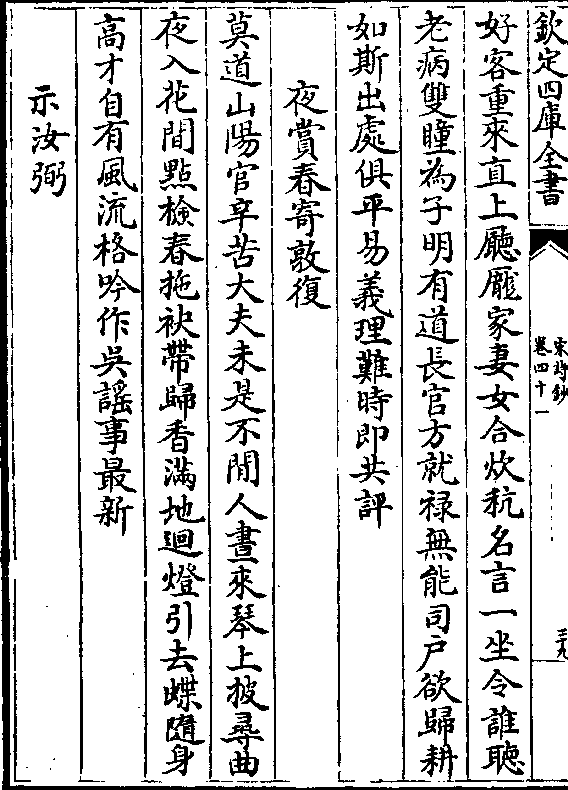 欽定四庫全書
宋詩鈔
卷四十一
三九
好客重來直上廳龎家妻女合炊秔名言一坐令誰聽
老病雙瞳為子明有道長官方就禄無能司戶欲歸耕
如斯出處俱平易義理難時即共評
夜賞春寄敦復
莫道山陽官辛苦大夫未是不閒人晝來琴上披尋曲
夜入花間點檢春拖袂帶歸香滿地迴燈引去蝶隨身
高才自有風流格吟作吳謠事最新
示汝弼